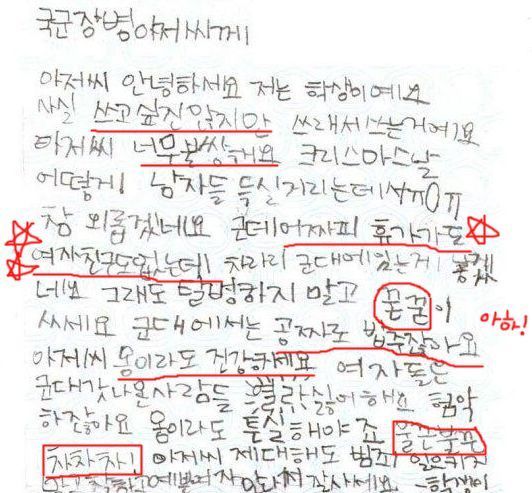 국군장병아저씨께
아저씨 안녕하세요 저는 학생이에요
사실 쓰고싶진 않지만 쓰래서쓰는거에요
아저씨 너무불쌍해요 크리스마스날
어떻게 남자들 득실거리는데서ㅠ0ㅠ
참 외롭겠네요 군데어짜피 휴가가도
여자친구도없는데 차라리 군대에있는게 좋겠
네요 그래도 탈영하지 말고
아하!
군대에서는 공짜로 밥주잖아요
아저씨 몽이라도 건강하세요 여자들은
군대갓나온사람들 싫어해요 험악
하잖아요 몽이라도 튼실해야죠 울끈불끈
차차차! 아저씨 제대해도 범죄 일으키지
착하고 예쁜여자 만나서 잘사세요 -학생이